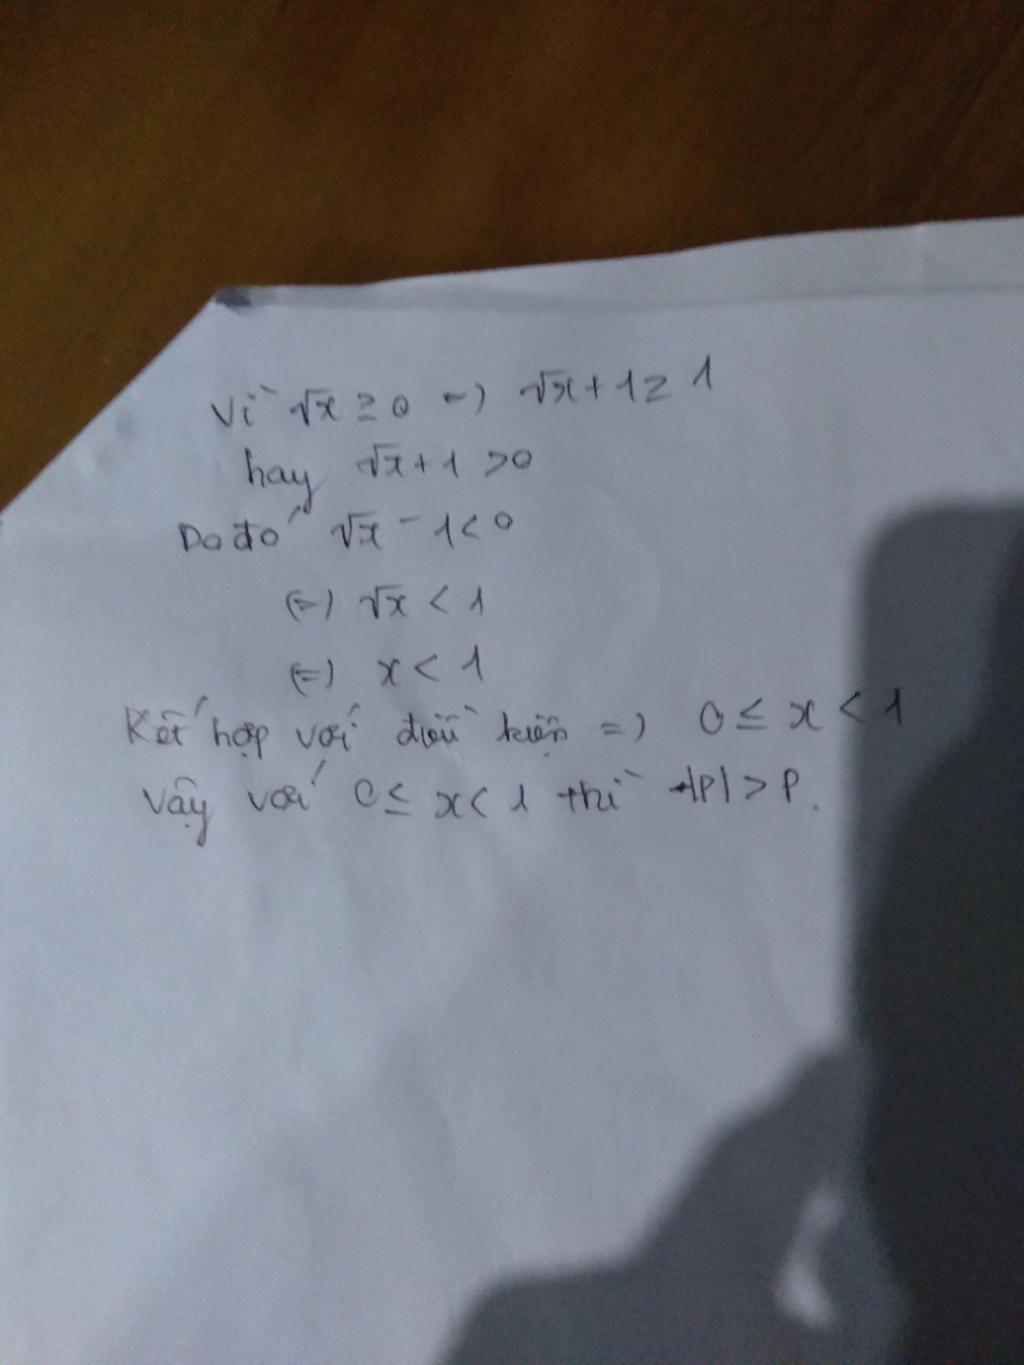 Vì √x ≥ 0 =) √x + 1 ≥ 1
hay √x + 1 > 0
Do đó √x - 1 < 0
(=) √x < 1
(=) x < 1
Kết hợp với điều kiện =) 0 ≤ x < 1
Vậy với 0 ≤ x < 1 thì |P| > P.